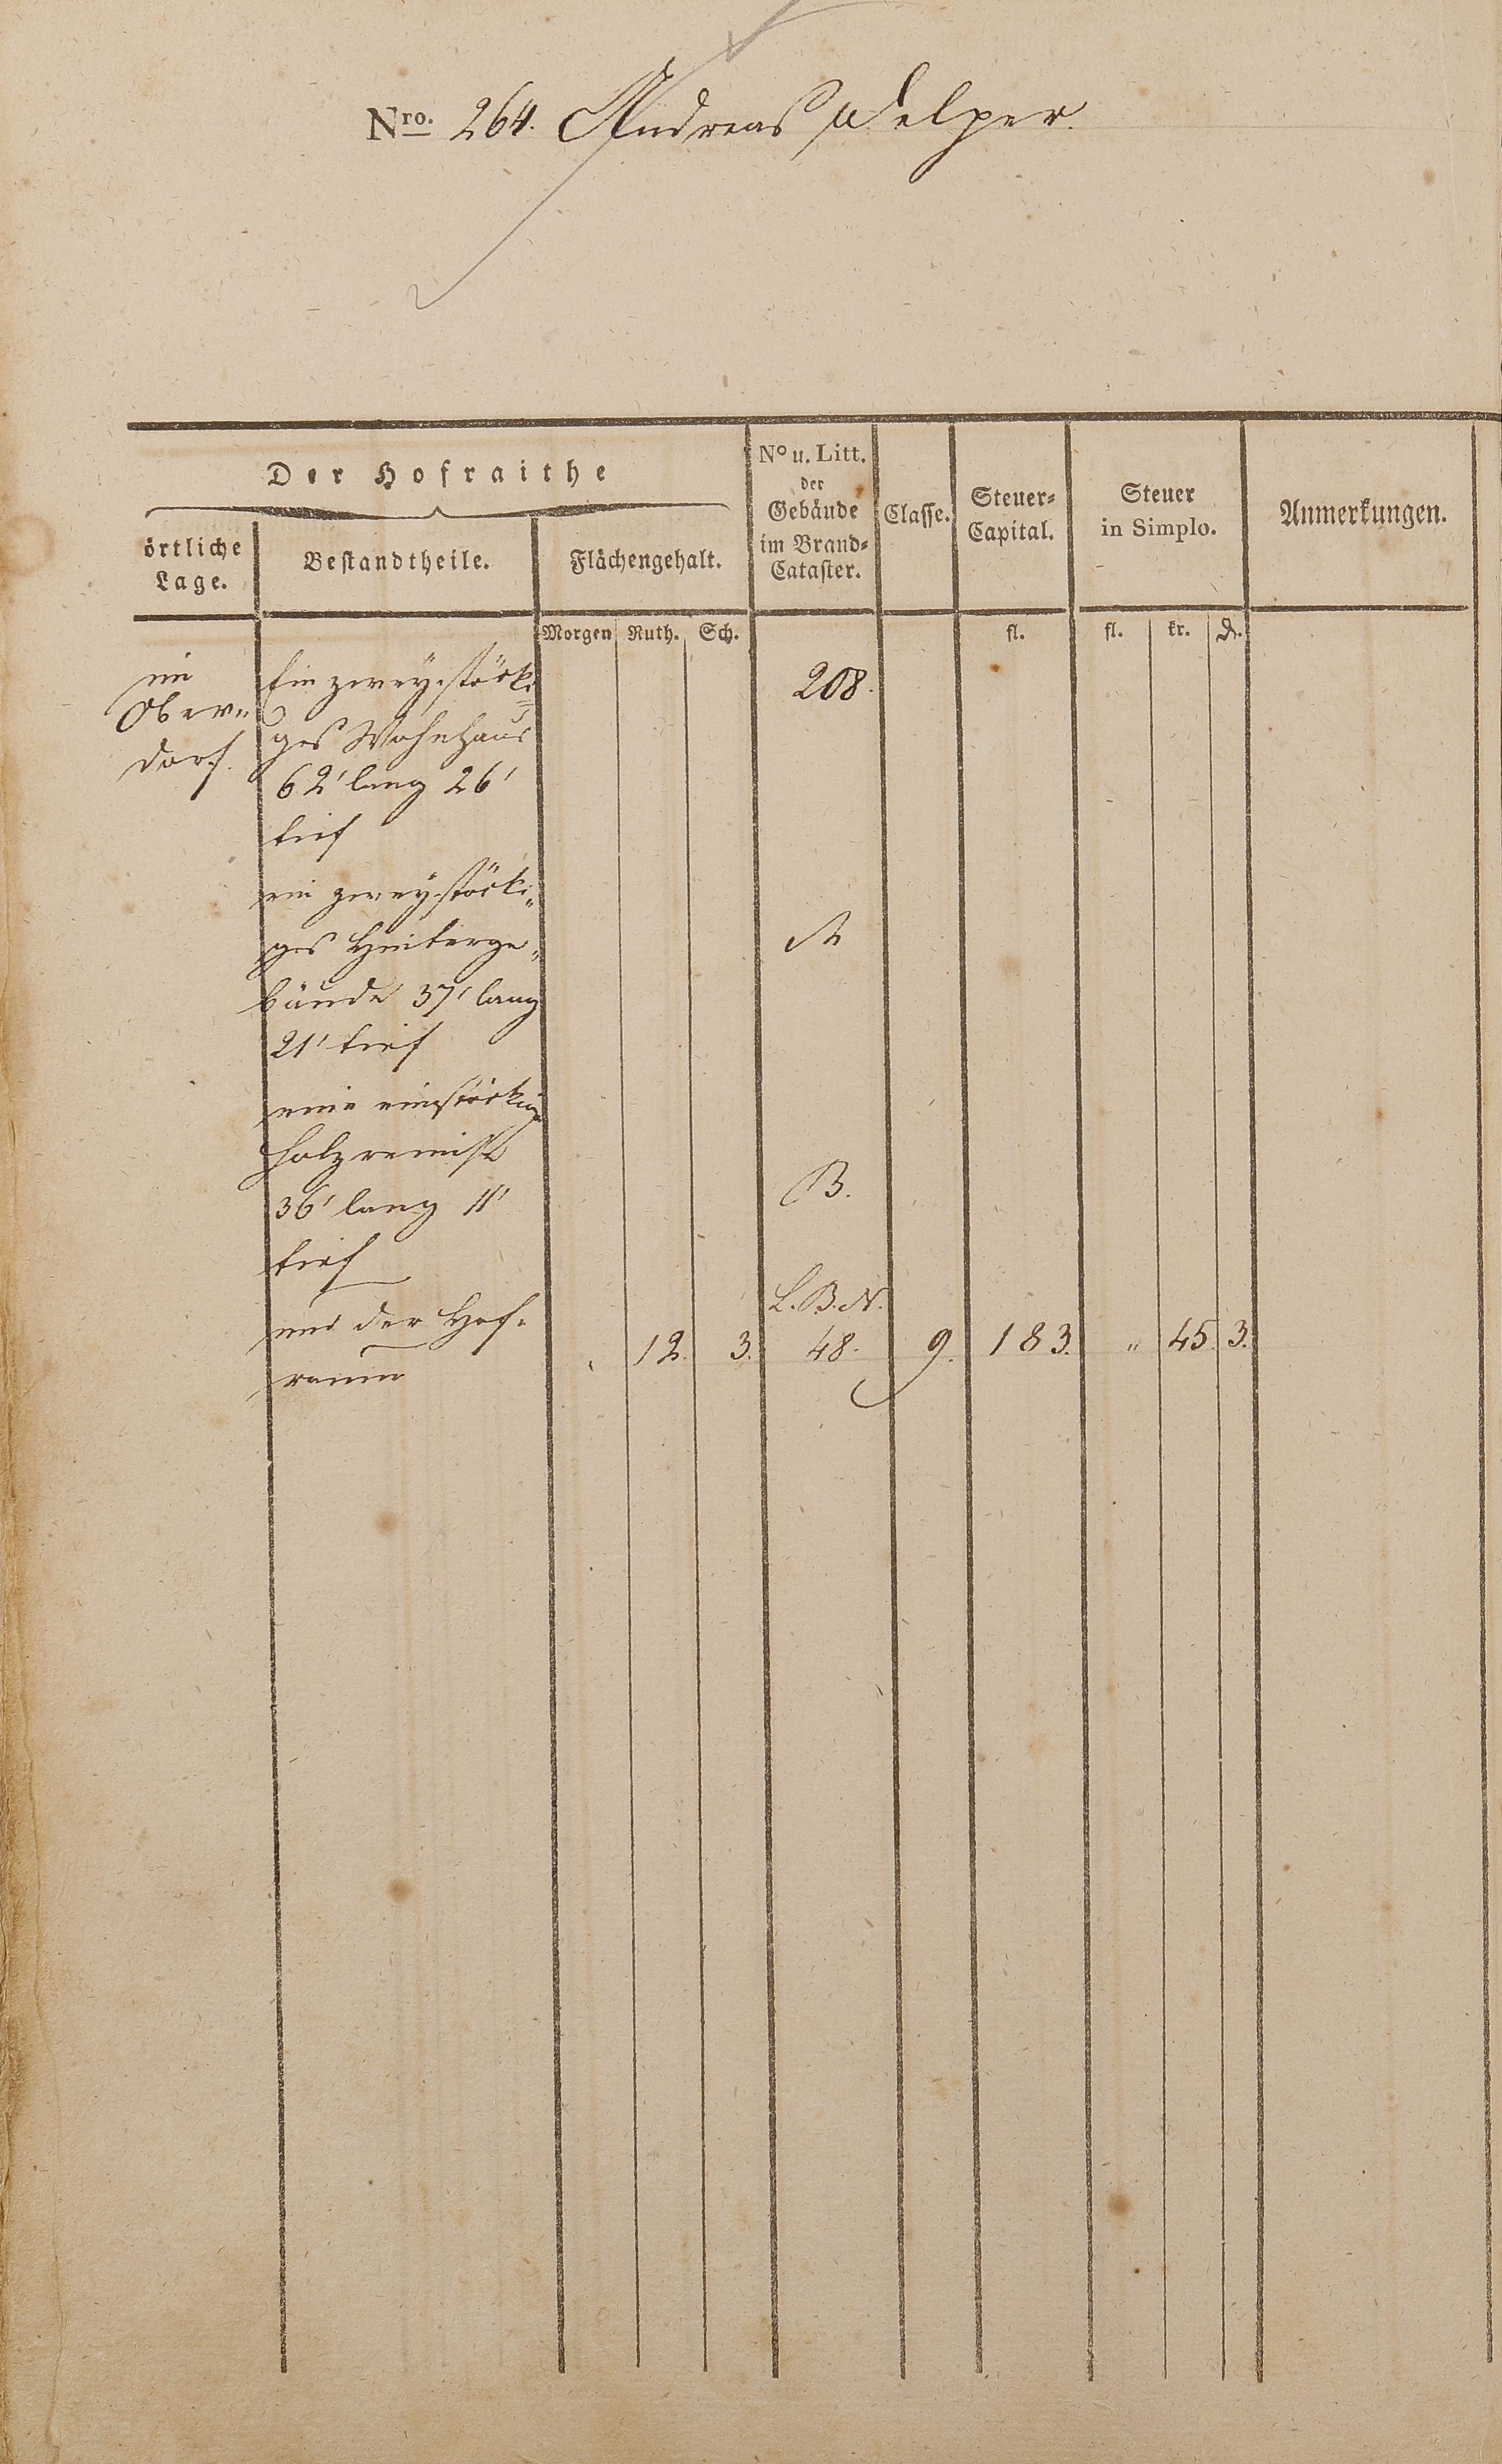 Nro. 264. Andreas Welper.
Der Hofraithe
örtliche Lage.
Bestandtheile.
Flächengehalt.
No u. Litt. der Gebäude im Brand-Cataster.
Classe.
Steuer-Capital.
Steuer in Simplo.
Anmerkungen.
Morgen Ruth. Sch. fl. fl. kr. ₰.
im
Obern
dorf.
Ein zweystöcki
ges Wohnhaus
62' lang 26'
tief
208.
ein zweystöcki„
ges Hinterge„
bäude 37' lang
21' tief
A
eine einstöckige
Holzremise
36' lang 11'
tief
B.
und der Hof-
raum
L. B. N.
12. 3. 48. 9. 183. „ 45 3.